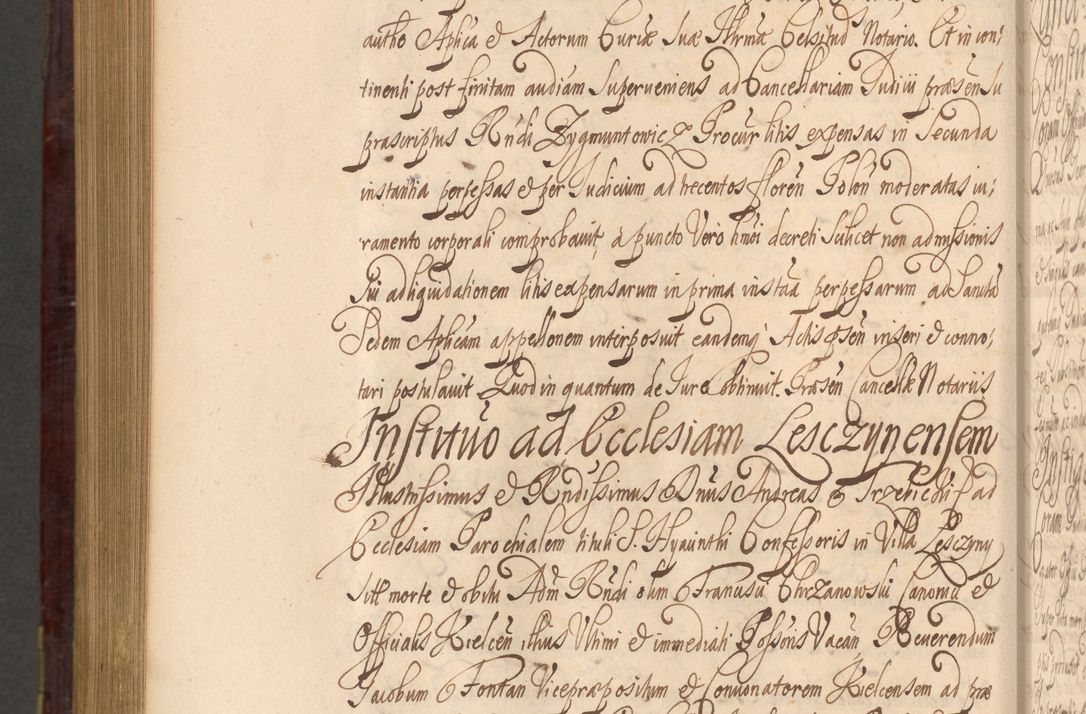 autho Aplica et Actorum Curiæ Suæ Illrmæ Celsitud Notario. Et in con:
tinenti post finitam audiam Superveniens ad Cancellariam Judicii præsen Su
præscriptus Rndi Zygmuntowicz Procur litis expensas in Secunda
instantia perpessas et per Judicium ad trecentos floren Polon moderatas iu:
ramento corporali comprobavit, a puncto Vero hmoi decreti Scilicet non admissionis
Sui ad liquidationem litis expensarum in prima instaa perpessarum ad Sanctã
Sedem Aplicam appellonem interposuit eandemq Actis psen inseri et conno:
tari postulavit Quod in quantum de Jure obtinuit. Præsen Cancellæ Notariis
Institutio ad Ecclesiam Lesczynensem
Illustrissimus et Rndissimus Dnus Andreas Trzebicki ad
Ecclesiam Parochialem tituli S. Hyacinthi Confessoris in Villa Lesczyny
Sitt morte et obitu Adm Rndi olim Francisci Chrzanowski Canonici et
Officialis Kielcen illius Ultimi et immediati Possoris Vacan Reverendum
Jacobum Fontan Vicepræpositum et Concionatorem Kielcensem ad præ